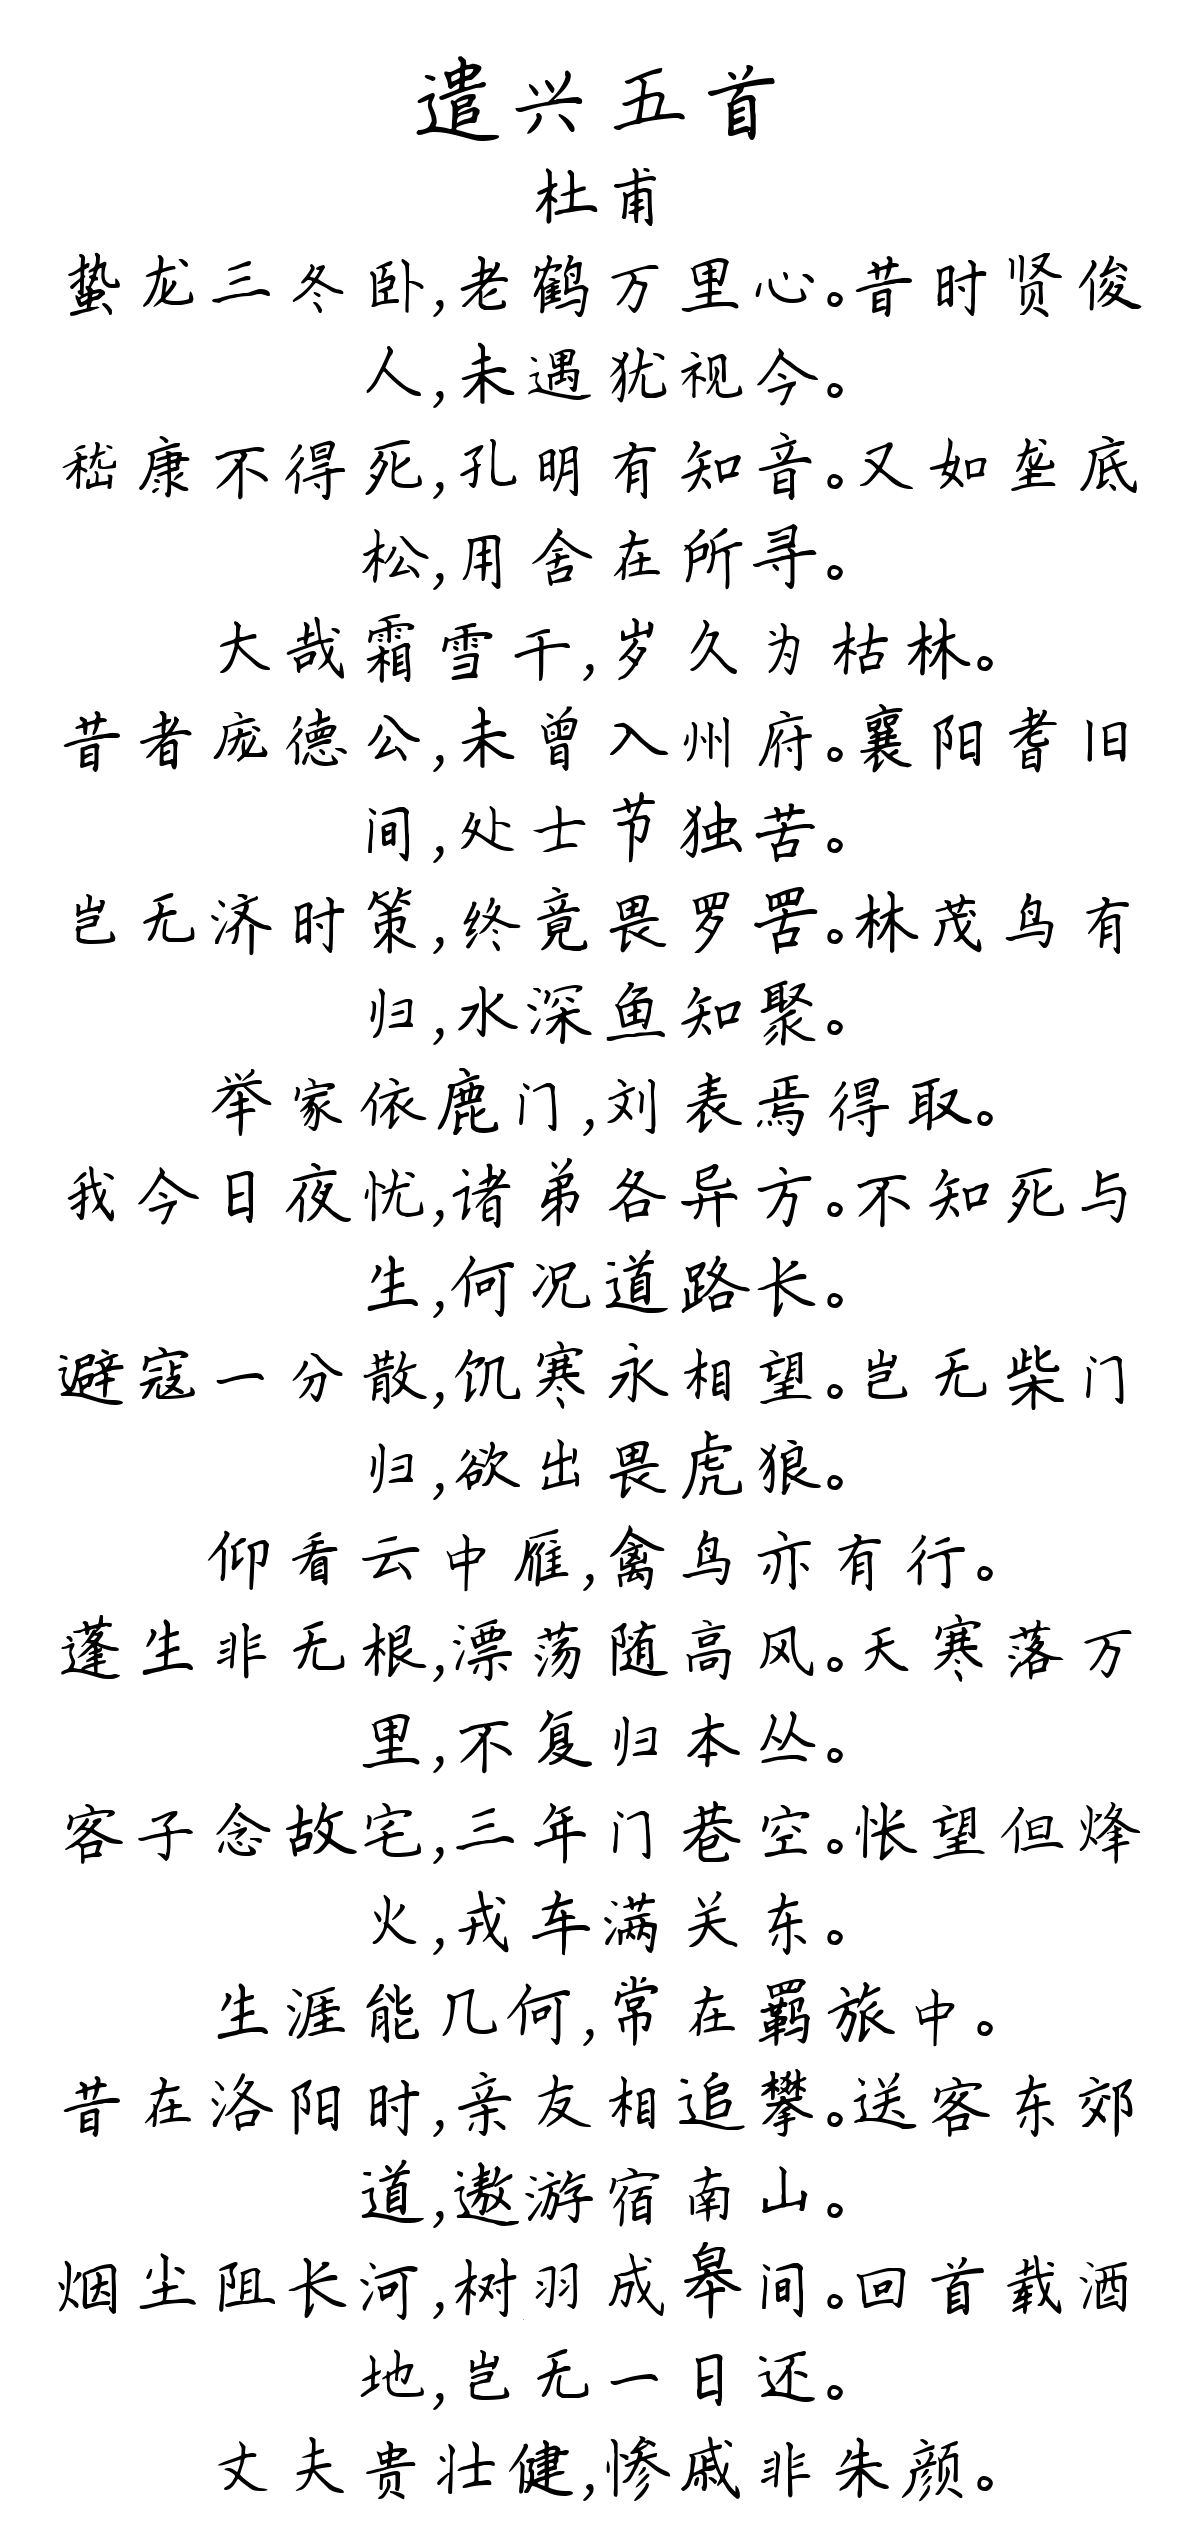 遣兴五首
杜甫
蛰龙三冬卧,老鹤万里心。昔时贤俊
人,未遇犹视今。
嵇康不得死,孔明有知音。又如垄底
松,用舍在所寻。
大哉霜雪干,岁久为枯林。
昔者庞德公,未曾入州府。襄阳耆旧
间,处士节独苦。
岂无济时策,终竟畏罗罟。林茂鸟有
归,水深鱼知聚。
举家依鹿门,刘表焉得取。
我今日夜忧,诸弟各异方。不知死与
生,何况道路长。
避寇一分散,饥寒永相望。岂无柴门
归,欲出畏虎狼。
仰看云中雁,禽鸟亦有行。
蓬生非无根,漂荡随高风。天寒落万
里,不复归本丛。
客子念故宅,三年门巷空。怅望但烽
火,戎车满关东。
生涯能几何,常在羁旅中。
昔在洛阳时,亲友相追攀。送客东郊
道,遨游宿南山。
烟尘阻长河,树羽成皋间。回首载酒
地,岂无一日还。
丈夫贵壮健,惨戚非朱颜。